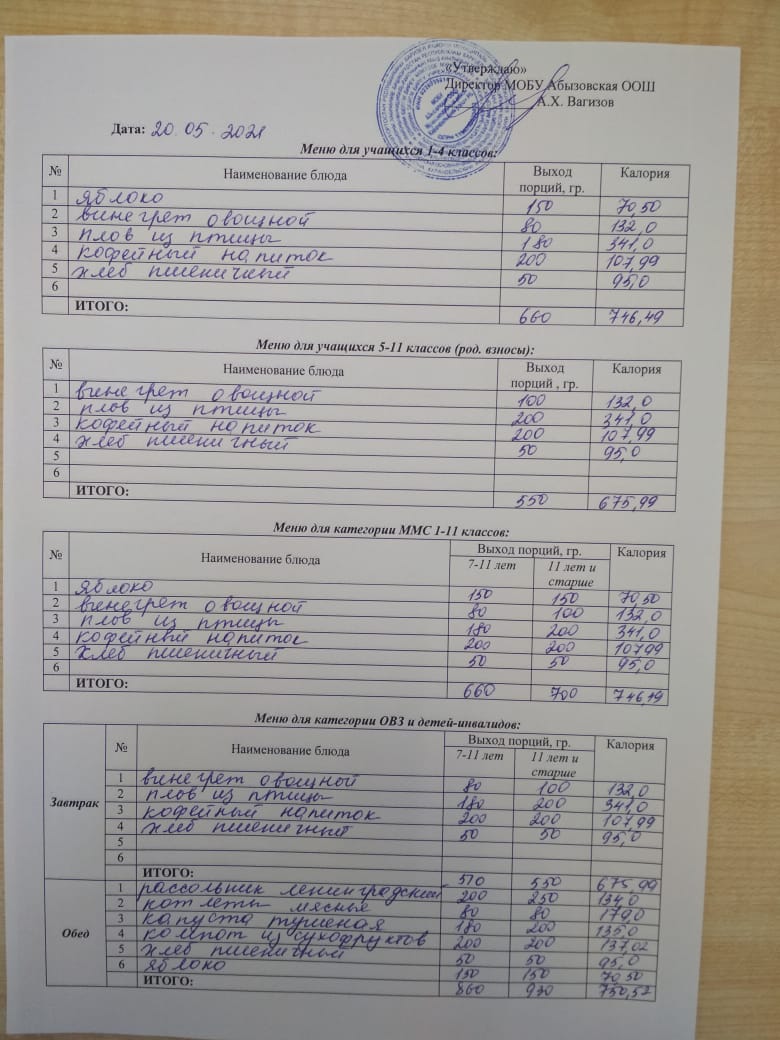 «Утверждаю»
Директор МОБУ Абызовская ООШ
А.Х. Вагизов
Дата: 20.05.2021
Меню для учащихся 1-4 классов:
№ Наименование блюда Выход порций, гр. Калория
1 яблоко 150 70,50
2 винегрет овощной 80 132,0
3 плов из птицы 180 341,0
4 кофейный напиток 200 107,99
5 хлеб пшеничный 50 95,0
6
ИТОГО: 660 746,49
Меню для учащихся 5-11 классов (род. взносы):
№ Наименование блюда Выход порций , гр. Калория
1 винегрет овощной 100 132,0
2 плов из птицы 200 341,0
3 кофейный напиток 200 107,99
4 хлеб пшеничный 50 95,0
5
6
ИТОГО: 550 675,99
Меню для категории ММС 1-11 классов:
№ Наименование блюда Выход порций, гр. Калория
7-11 лет 11 лет и старше
1 яблоко 150 150 70,50
2 винегрет овощной 80 100 132,0
3 плов из птицы 180 200 341,0
4 кофейный напиток 200 200 107,99
5 хлеб пшеничный 50 50 95,0
6
ИТОГО: 660 700 746,49
Меню для категории ОВЗ и детей-инвалидов:
№ Наименование блюда Выход порций, гр. Калория
7-11 лет 11 лет и старше
Завтрак
1 винегрет овощной 80 100 132,0
2 плов из птицы 180 200 341,0
3 кофейный напиток 200 200 107,99
4 хлеб пшеничный 50 50 95,0
5
6
ИТОГО: 510 550 675,99
Обед
1 рассольник ленинградский 200 250 134,0
2 котлеты мясные 80 80 179,0
3 капуста тушеная 180 200 135,0
4 компот из сухофруктов 200 200 137,02
5 хлеб пшеничный 50 50 95,0
6 яблоко 150 150 70,50
ИТОГО: 860 930 750,52